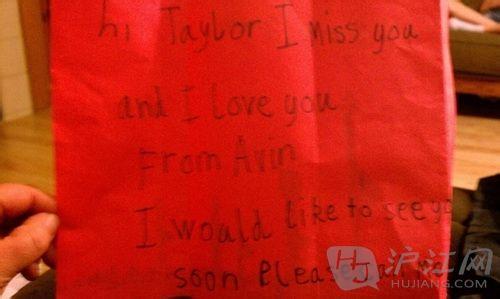 hi Taylor I miss you
and I love you
From Avin
I would like to see yo
soon Please
HJ 沪江网
HUJIANG.COM